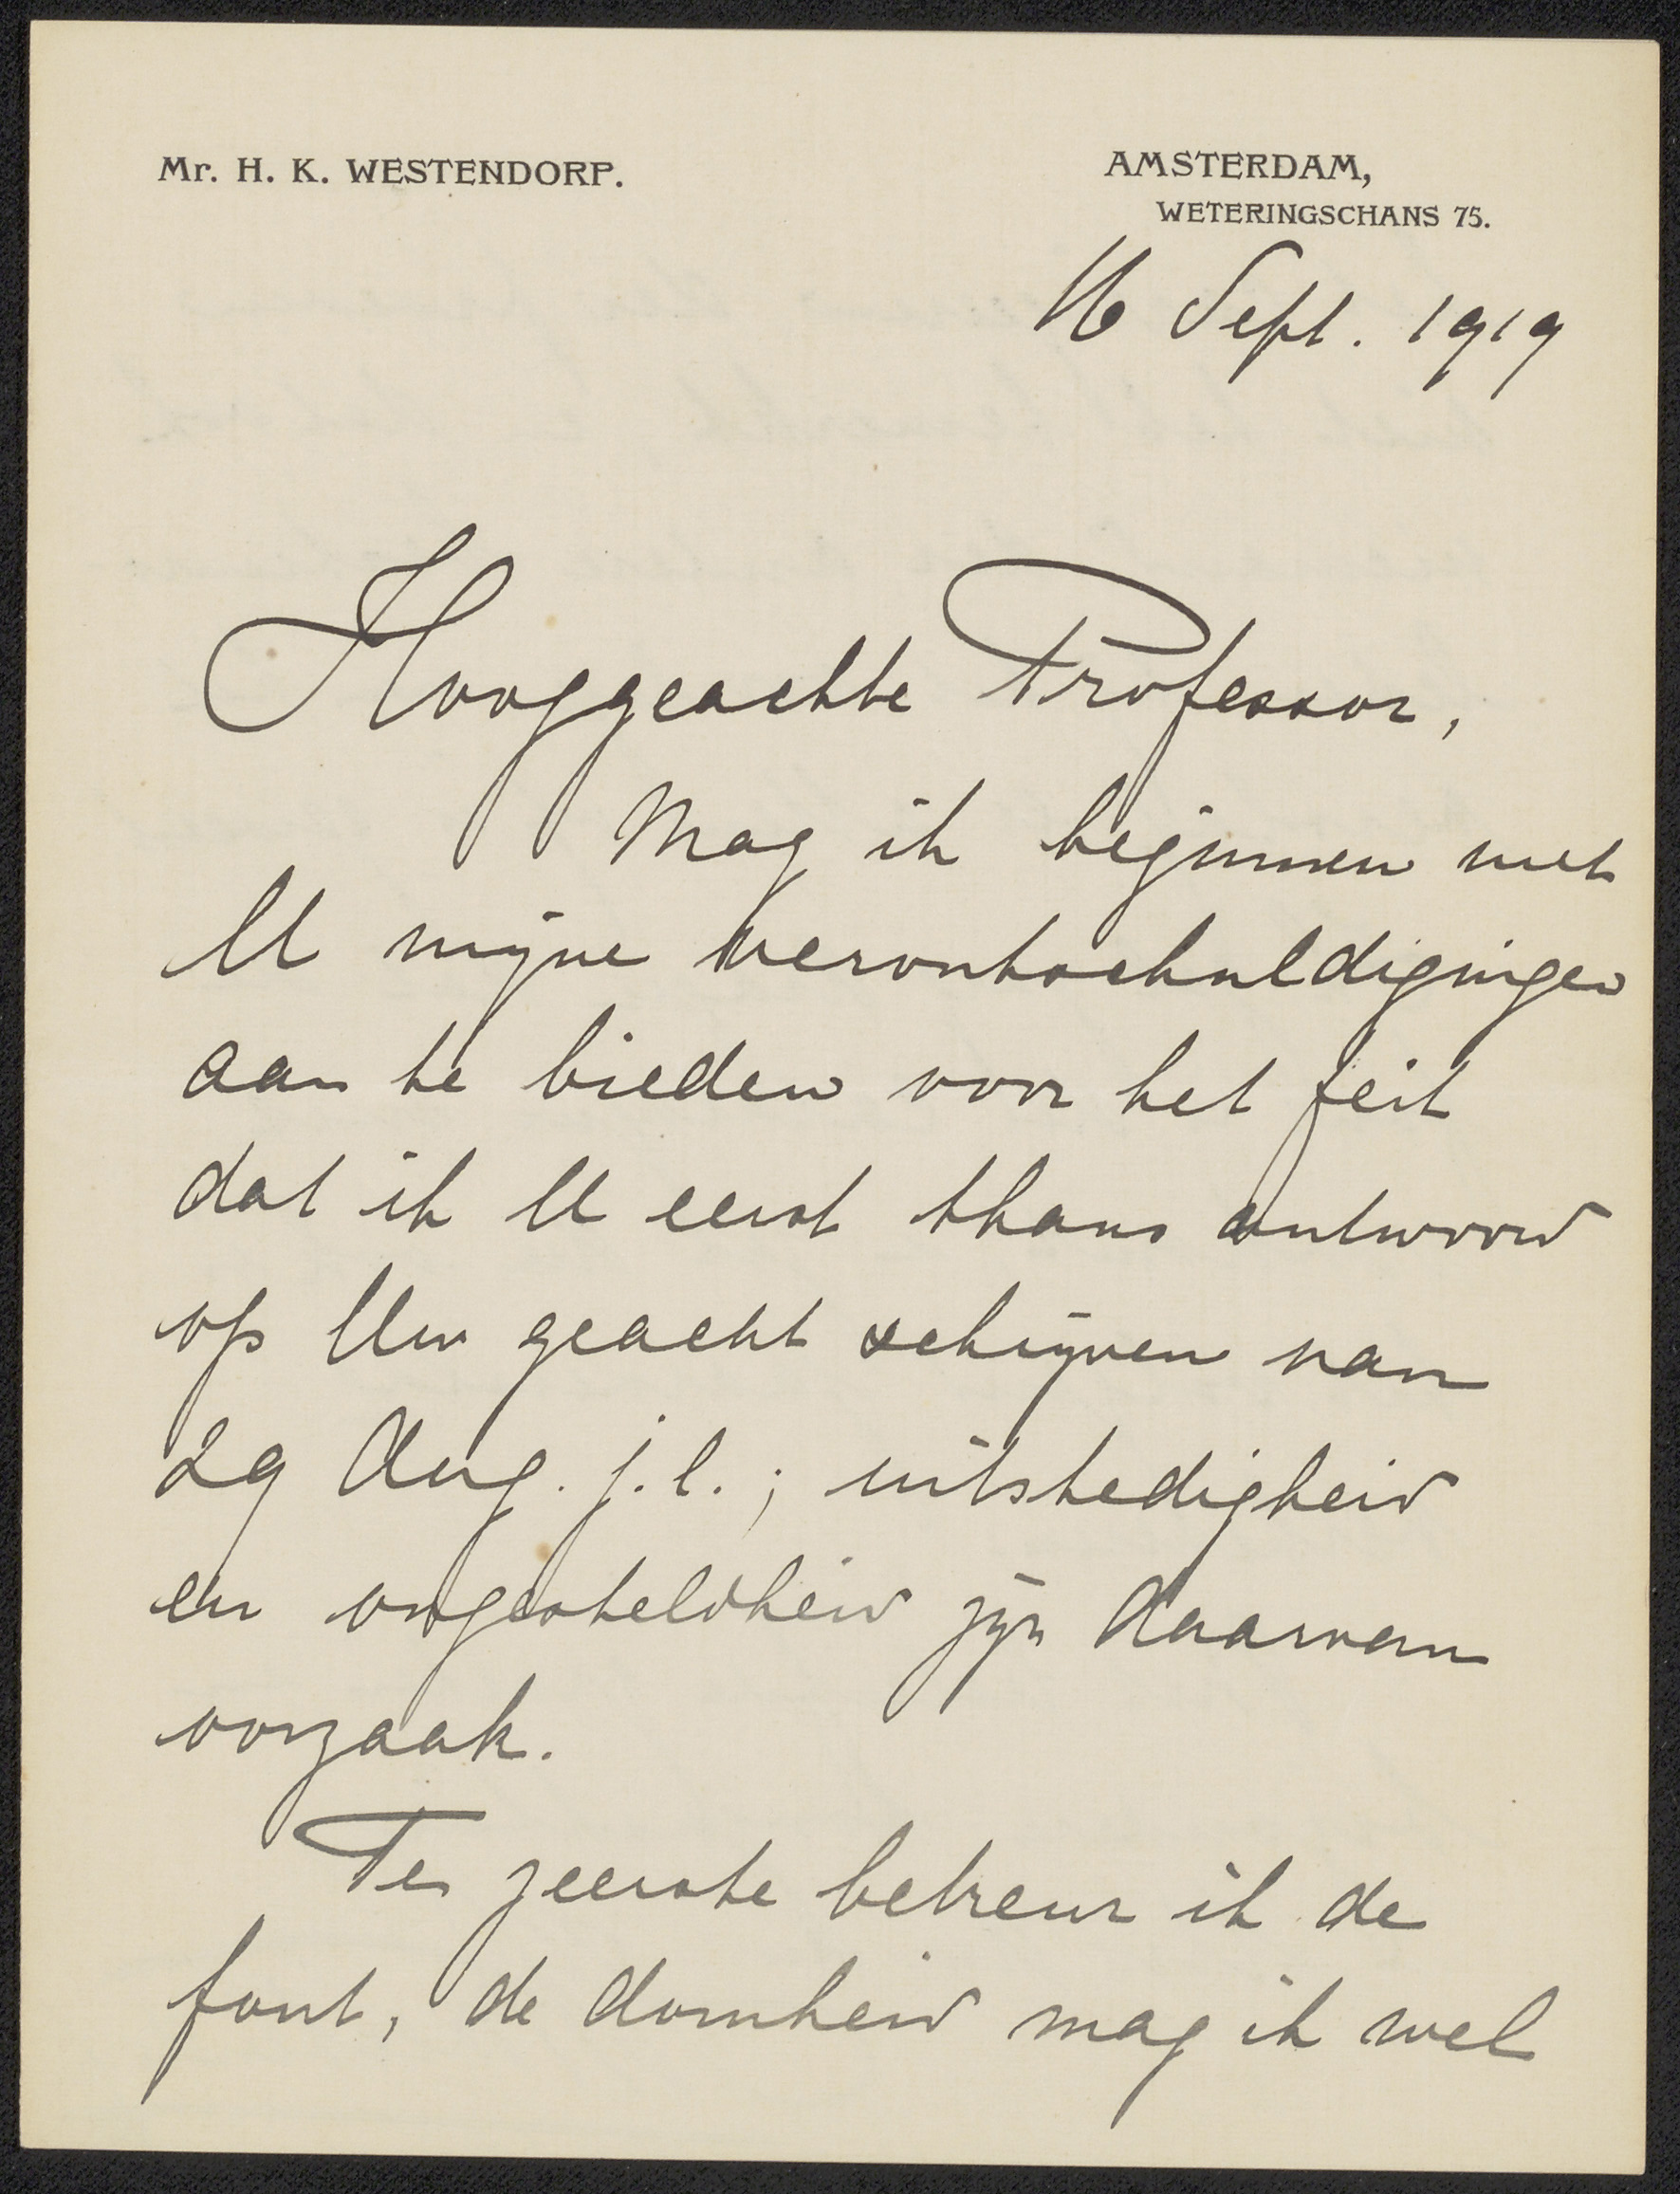 Mr. H. K. WESTENDORP.
AMSTERDAM,
WETERINGSCHANS 75.
16 Sept. 1919
Hooggeachte Professor,
Mag ik beginnen met
U mijne verontschuldigingen
aan te bieden voor het feit
dat ik U eerst thans antwoord
op Uw geacht schrijven van
29 Aug. j.l.; uitstedigheid
en ongesteldheid zijn daarvan
oorzaak.
Ten zeerste betreur ik de
fout, de domheid mag ik wel